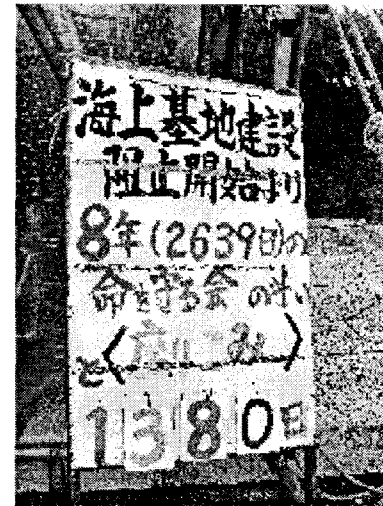 海上基地建設
阻止開始
8年(2639日)の
命を守る会の
と〈座りこみ〉
1380日